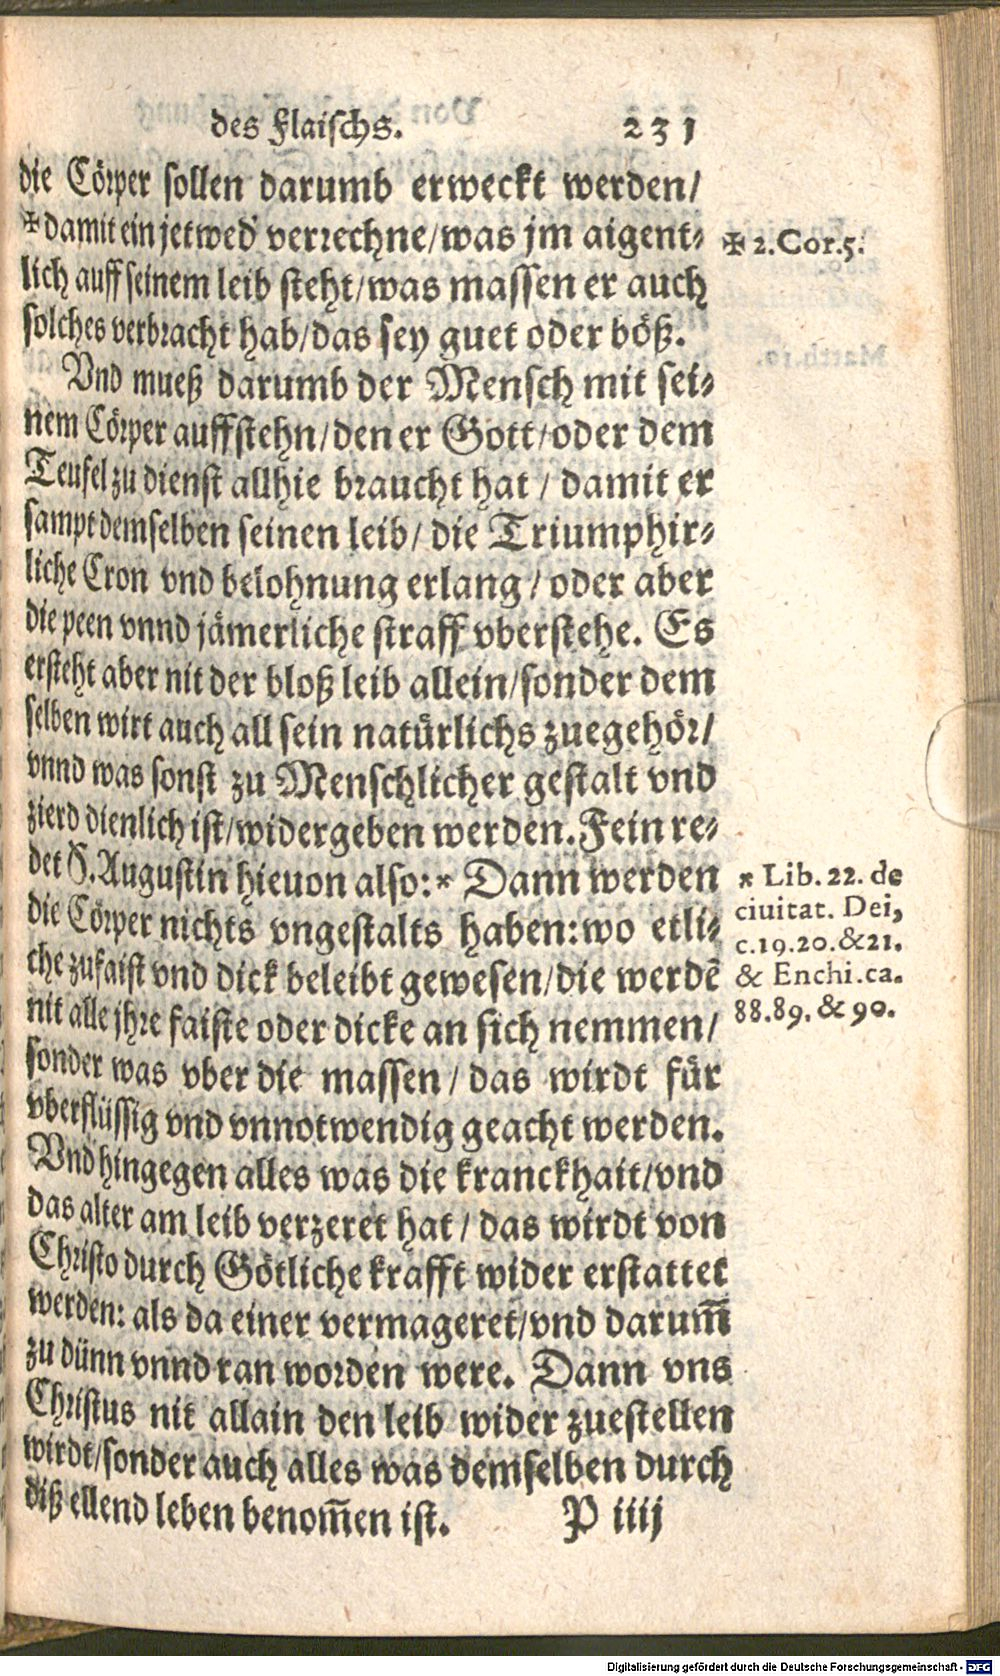 des Flaischs. 231
die Cörper sollen darumb erweckt werden/
✠damit ein jetwed' verrechne/was jm aigent⸗
lich auff seinem leib steht/was massen er auch
solches verbracht hab/das sey guet oder böß.
Vnd mueß darumb der Mensch mit sei⸗
nem Cörper auffstehn/den er Gott/oder dem
Teufel zu dienst allhie braucht hat/ damit er
sampt demselben seinen leib/ die Triumphir⸗
liche Cron vnd belohnung erlang/ oder aber
die peen vnnd jämerliche straff vberstehe. Es
ersteht aber nit der bloß leib allein/sonder dem
selben wirt auch all sein natürlichs zuegehör/
vnnd was sonst zu Menschlicher gestalt vnd
zierd dienlich ist/widergeben werden. Fein re⸗
det H. Augustin hieuon also:* Dann werden
die Cörper nichts vngestalts haben: wo etli⸗
che zufaist vnd dick beleibt gewesen/die werdē
nit alle jhre faiste oder dicke an sich nemmen/
sonder was vber die massen/ das wirdt für
vberflüssig vnd vnnotwendig geacht werden.
Vnd hingegen alles was die kranckhait/vnd
das alter am leib verzeret hat/ das wirdt von
Christo durch Götliche krafft wider erstattet
werden: als da einer vermageret/vnd darum̄
zu dünn vnnd ran worden were. Dann vns
Christus nit allain den leib wider zuestellen
wirdt/sonder auch alles was demselben durch
diß ellend leben benom̄en ist. P iiij
✠ 2. Cor. 5.
* Lib. 22. de
ciuitat. Dei,
c. 19. 20. & 21.
& Enchi. ca.
88. 89. & 90.
Digitalisierung gefördert durch die Deutsche Forschungsgemeinschaft - DFG